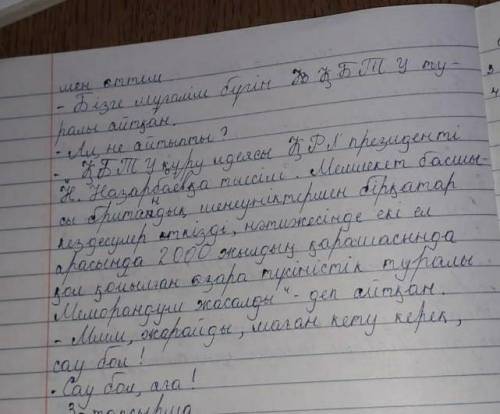 мен еттим
- Бізге мұғалім бүгін ҚБТУ ту-
ралы айтқан.
- Ал не айтыпты?
- ҚБТУ құру идеясы ҚР президенті
Н. Назарбаевқа тиесілі. Мемлекет басшы-
сы британдық шенеуніктермен бірқатар
кездесулер өткізді, нәтижесінде екі ел
арасында 2000 жылдың қарашасында
қол қойылған өзара түсіністік туралы
Меморандум жасалды" - деп айтқан.
- Ммм, жарайды, маған кету керек,
сау бол!
- Сау бол, аға!
3-тапсырма